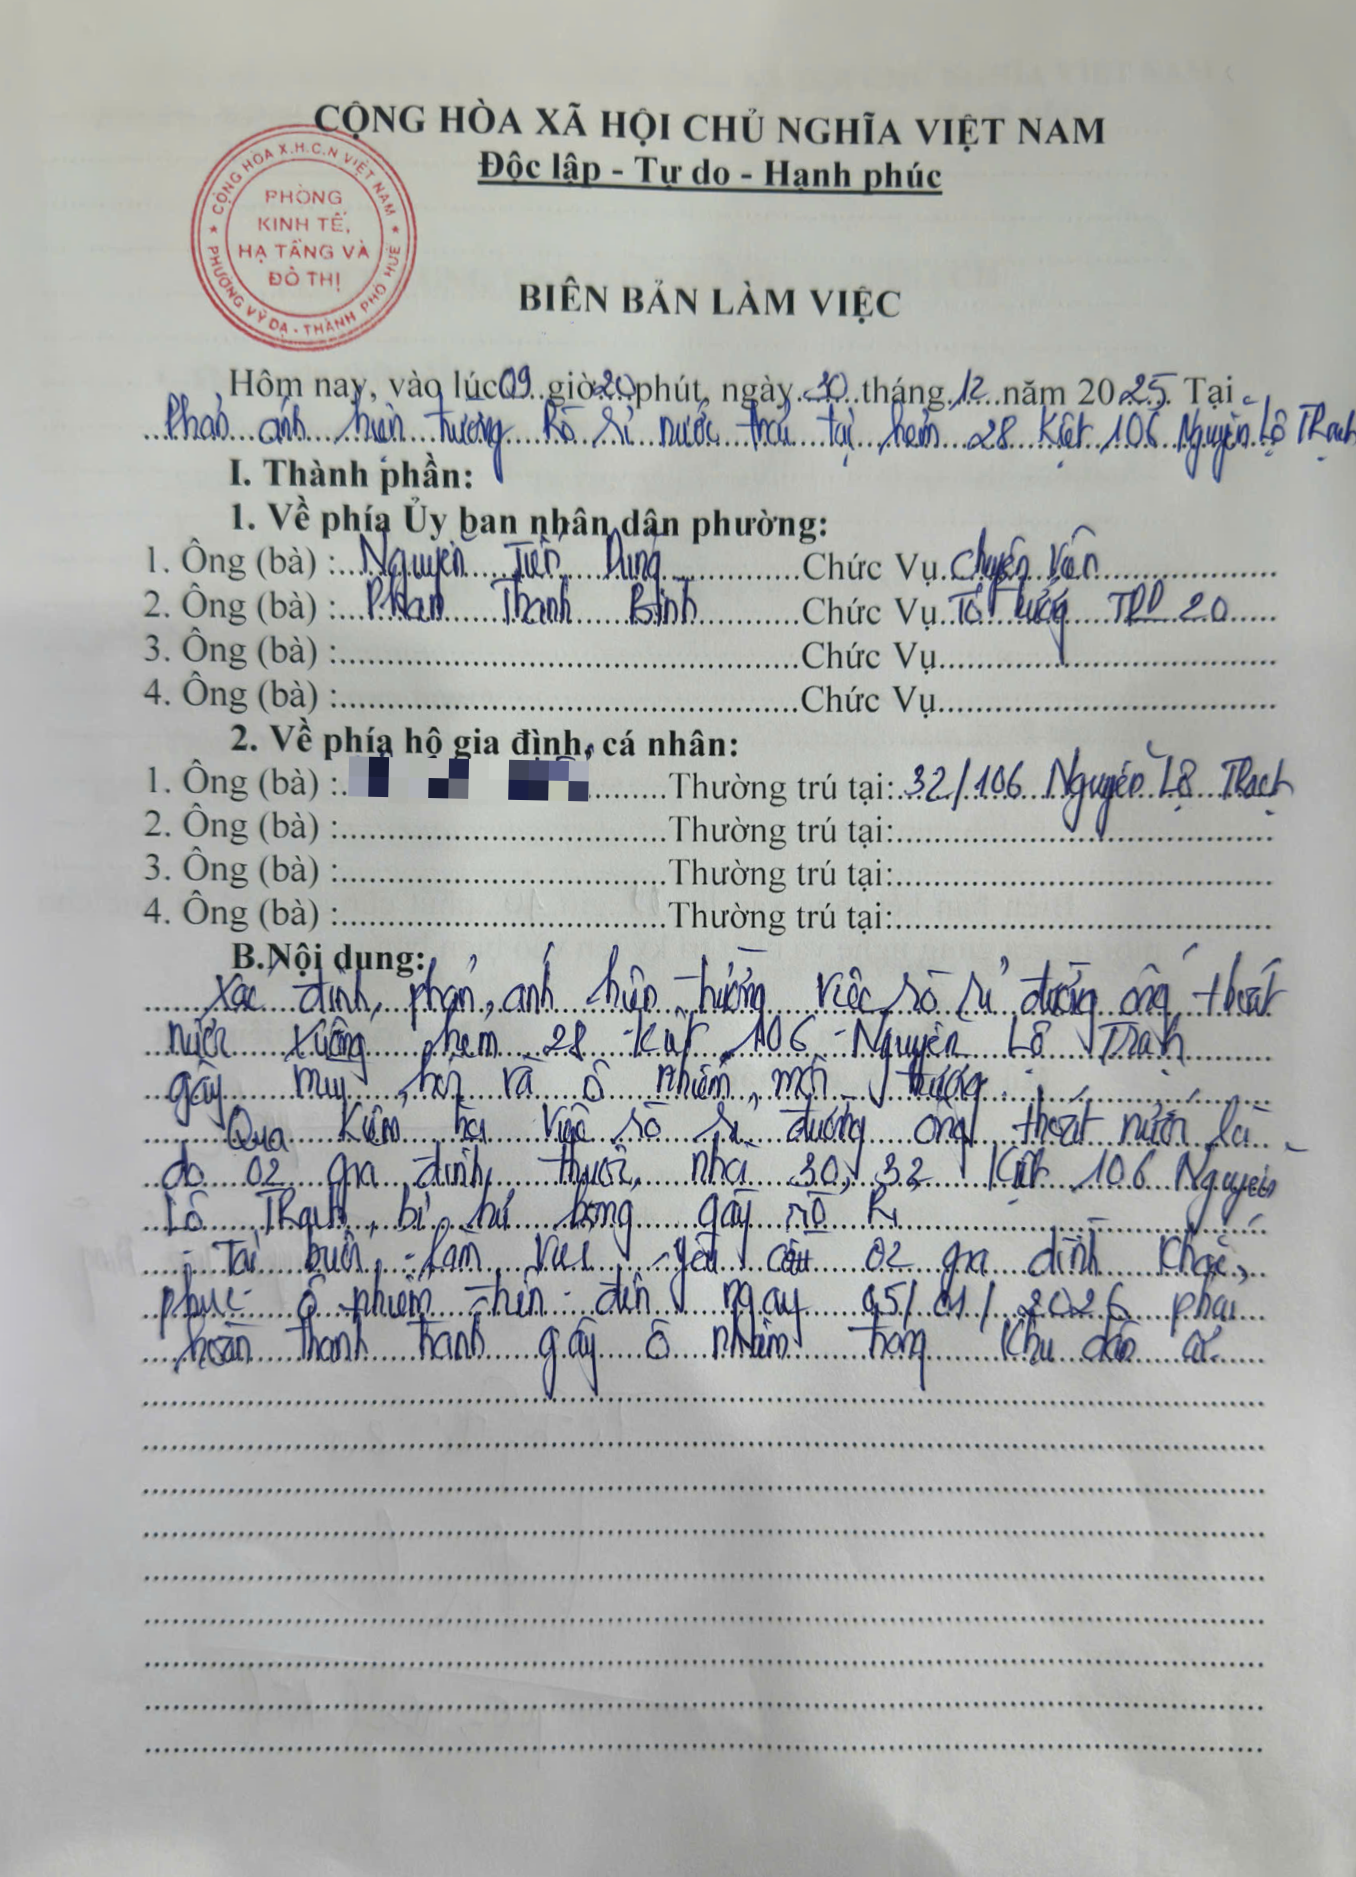 CỘNG HÒA XÃ HỘI CHỦ NGHĨA VIỆT NAM
Độc lập - Tự do - Hạnh phúc
CỘNG HÒA X.H.C.N VIỆT NAM
PHÒNG
KINH TẾ,
HẠ TẦNG VÀ
ĐÔ THỊ
PHƯỜNG VỸ DẠ - THÀNH PHỐ HUẾ
BIÊN BẢN LÀM VIỆC
Hôm nay, vào lúc 09 giờ 20 phút, ngày 30 tháng 12 năm 2025 Tại
Phản ánh hiện tượng Rò Rỉ nước thải tại hẻm 28 Kiệt 106 Nguyễn Lộ Trạch
I. Thành phần:
1. Về phía Ủy ban nhân dân phường:
1. Ông (bà) : Nguyễn Tiến Dũng Chức Vụ Chuyên Viên
2. Ông (bà) : Phan Thanh Bình Chức Vụ Tổ trưởng TDP 20
3. Ông (bà) : Chức Vụ
4. Ông (bà) : Chức Vụ
2. Về phía hộ gia đình, cá nhân:
1. Ông (bà) : Thường trú tại: 32/106 Nguyễn Lộ Trạch
2. Ông (bà) : Thường trú tại:
3. Ông (bà) : Thường trú tại:
4. Ông (bà) : Thường trú tại:
B.Nội dung:
Xác định, phản ánh hiện tượng việc rò rỉ đường ống thoát
nước xuống hẻm 28 Kiệt 106 - Nguyễn Lộ Trạch
gây mùi hôi và ô nhiễm môi trường.
Qua kiểm tra việc rò rỉ đường ống thoát nước là
do 02 gia đình, thuộc nhà 30, 32 Kiệt 106 Nguyễn
Lộ Trạch, bị hư hỏng gây rò rỉ
- Tại buổi làm việc yêu cầu 02 gia đình khắc
phục ô nhiễm đến ngày 05/01/2026 phải
hoàn thành tránh gây ô nhiễm trong khu dân cư.